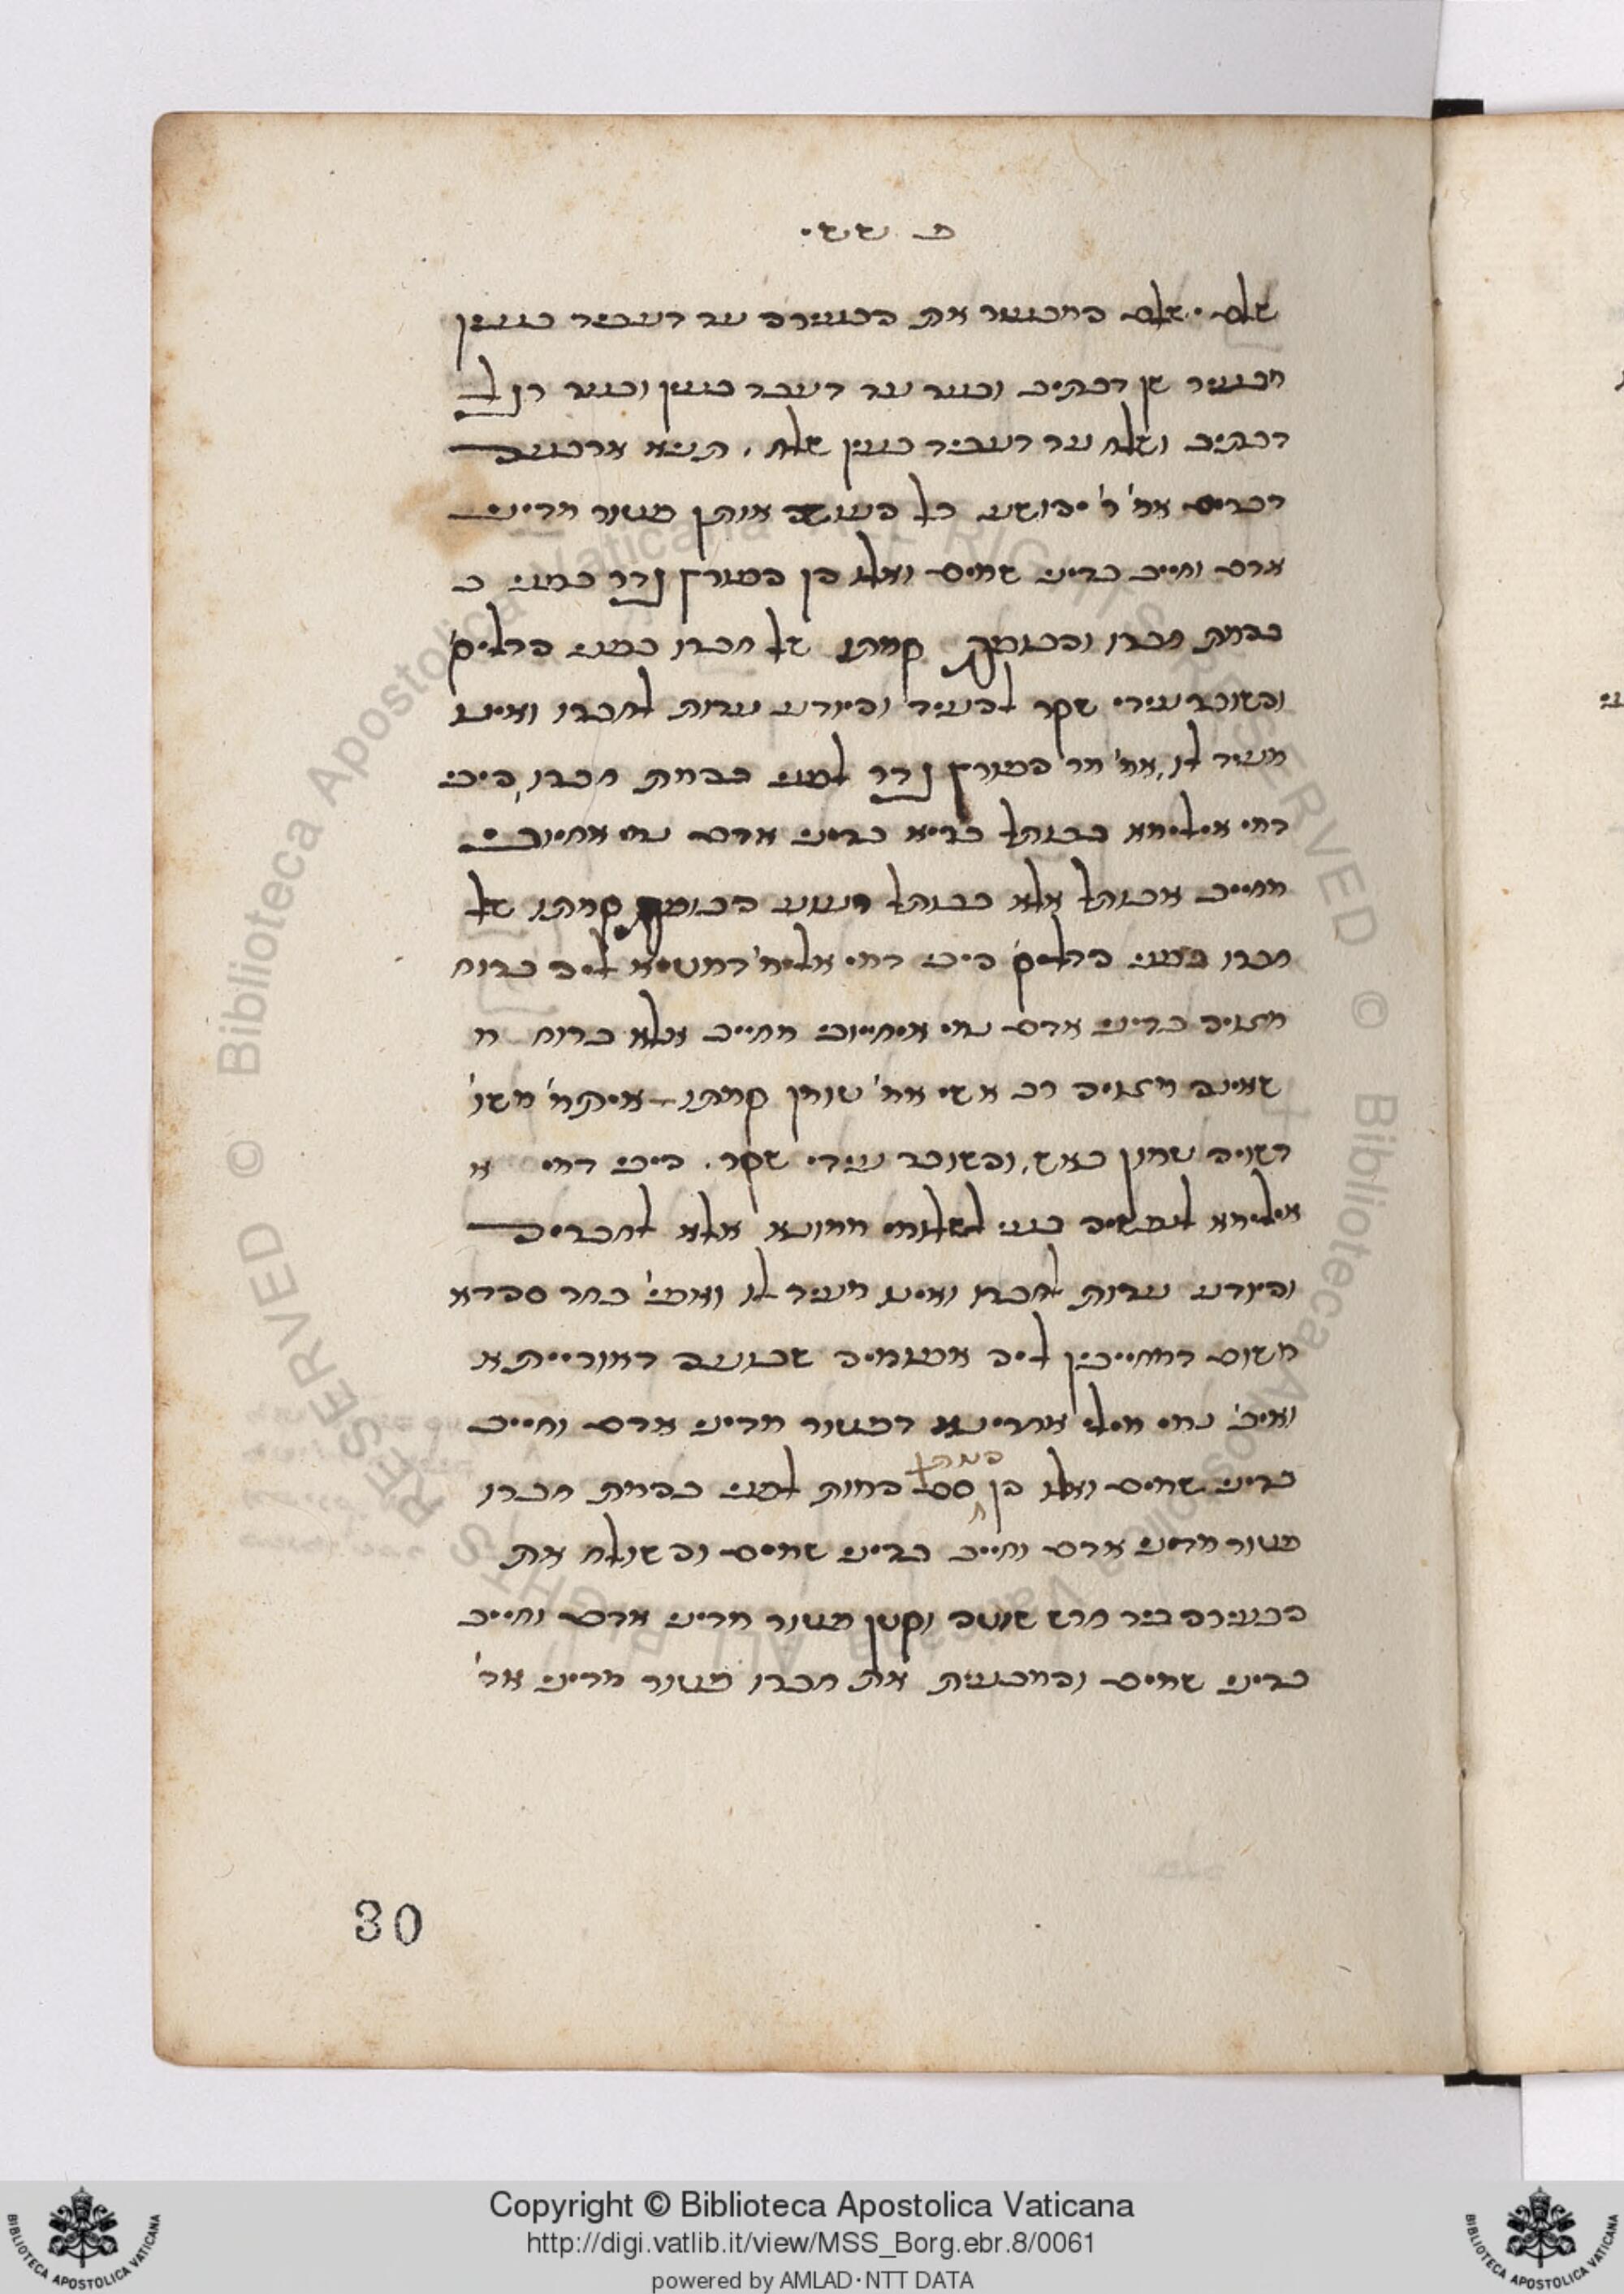 פ ששי.
שלם. שלם המבעיר את הבעירה עד דעביד כעין
מבעיר שן דכתיב ובער עד דעבד כעין ובער רגל
דכתיב ושלח עד דעביד כעין שלח. תניא ארבעה
דברים אמ' ר' יהושע כל העושה אותן פטור מדיני
אדם וחייב בדיני שמים ואלו הן הפורץ גדר בפני ב
בהמת חברו והכופף קמתו של חברו בפני הדליק'
והשוכר עידי שקר להעיד והיודע עדות לחברו ואינו
מעיד לו, אמ' מר הפורץ גדר לפני בהמת חברו, היכי
דמי אילימא בכותל בריא בדיני אדם מי איחיובי
מחייב אכותל אלא בכותל רעוע הכופף קמתו של
חברו בפני הדליק' היכי דמי אלימ' דמטיא ליה ברוח
מצויה בדיני אדם מי איחיובי מחייב אלא ברוח ח
שאינה מצויה רב אשי אמ' טומן קמתו איתמ' משו'
דשויה טמון באש, והשוכר עידי שקר. היכי דמי א
אילימא לנפשיה בעי לשלומי ממונא אלא לחבריה
והיודע עדות לחברו ואינו מעיד לו ואמ' במר ספרא
משום דמחייבין ליה אסהדיה שבועה דאורייתא
ואיכ' נמי מילי אחרינא דפטור מדיני אדם וחייב
בדיני שמים ואלו הן המתן
סם המות לפני בהמת חברו
פטור מדיני אדם וחייב בדיני שמים והשולח את
הבעירה ביד חרש שוטה וקטן פטור מדיני אדם וחייב
בדיני שמים והמבעית את חברו פטור מדיני אד'
30
Copyright © Biblioteca Apostolica Vaticana
http://digi.vatlib.it/view/MSS_Borg.ebr.8/0061
powered by AMLAD·NTT DATA